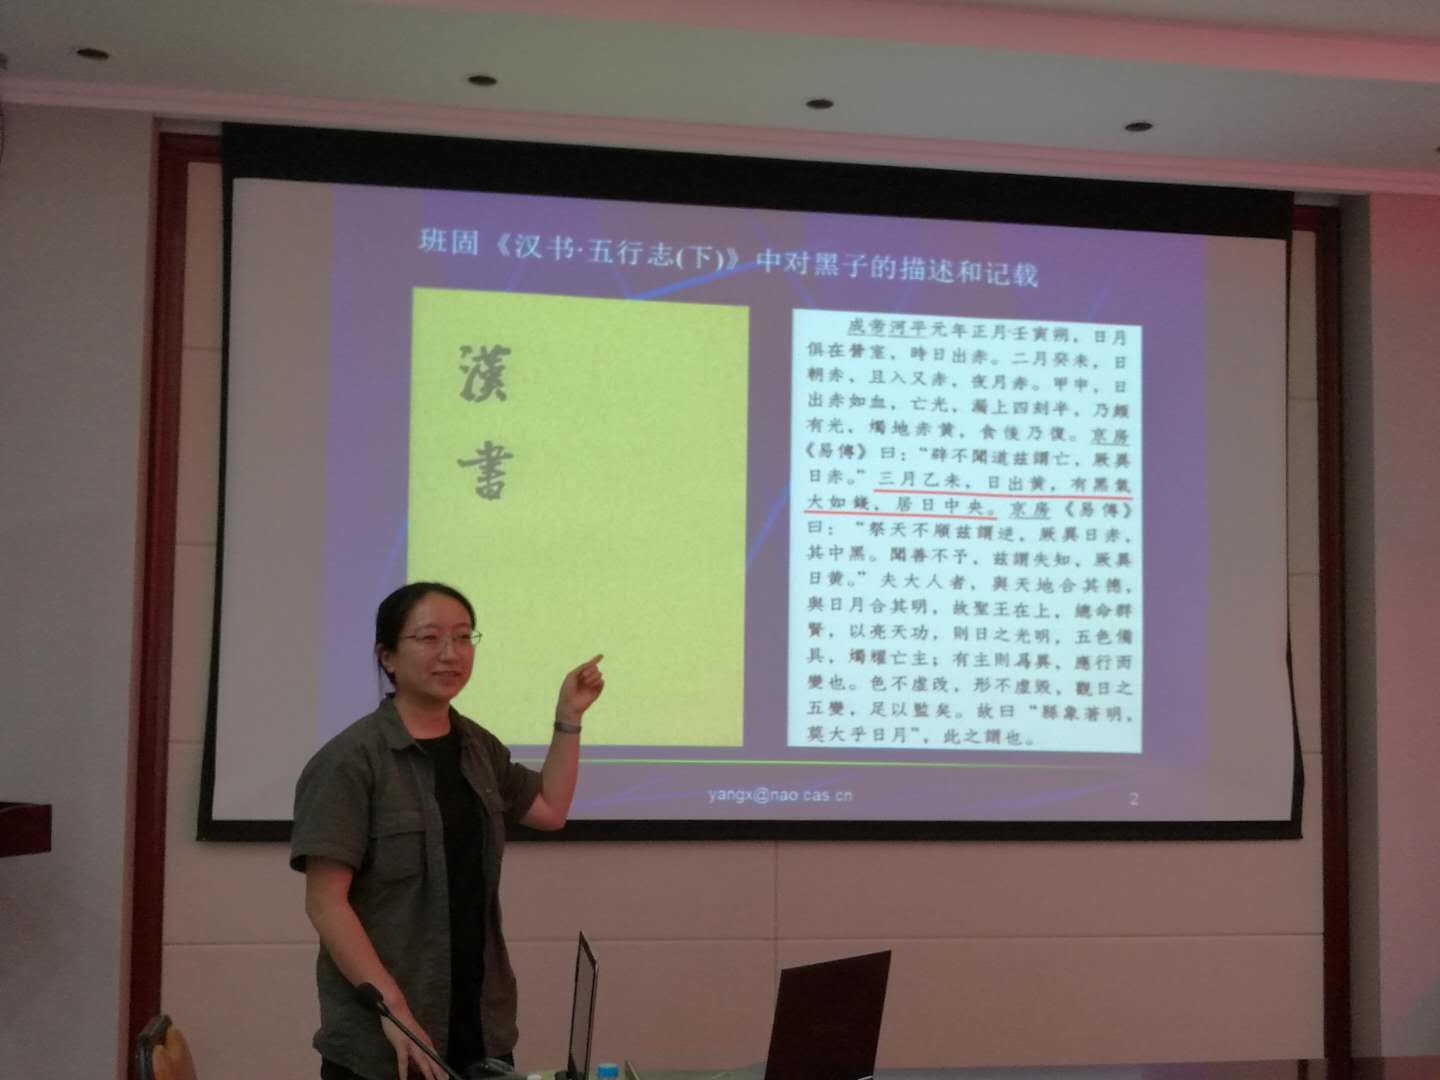 班固《汉书·五行志(下)》中对黑子的描述和记载
漢
書
成帝河平元年正月壬寅朔，日月
俱在營室，時日出赤。二月癸未，日
朝赤，且入又赤，夜月赤。甲申，日
出赤如血，亡光，漏上四刻半，乃頗
有光，燭地赤黃，食後乃復。京房
《易傳》曰：“辟不聞道茲謂亡，厥異
日赤。”三月乙未，日出黃，有黑氣
大如錢，居日中央。京房《易傳》
曰：“祭天不順茲謂逆，厥異日赤，
其中黑。聞善不予，茲謂失知，厥異
日黃。”夫大人者，與天地合其德，
與日月合其明，故聖王在上，總命群
賢，以亮天功，則日之光明，五色備
具，燭燿亡主；有主則爲異，應行而
變也。色不虛改，形不虛毀，觀日之
五變，足以監矣。故曰“縣象著明，
莫大乎日月”，此之謂也。
yangx@nao.cas.cn
2